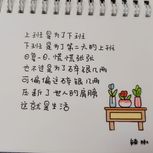 上班是为了下班
下班是为了第二天的上班
日复一日，慌慌张张
也不过是为了碎银几两
可偏偏这碎银几两
压断了世人的肩膀
这就是生活